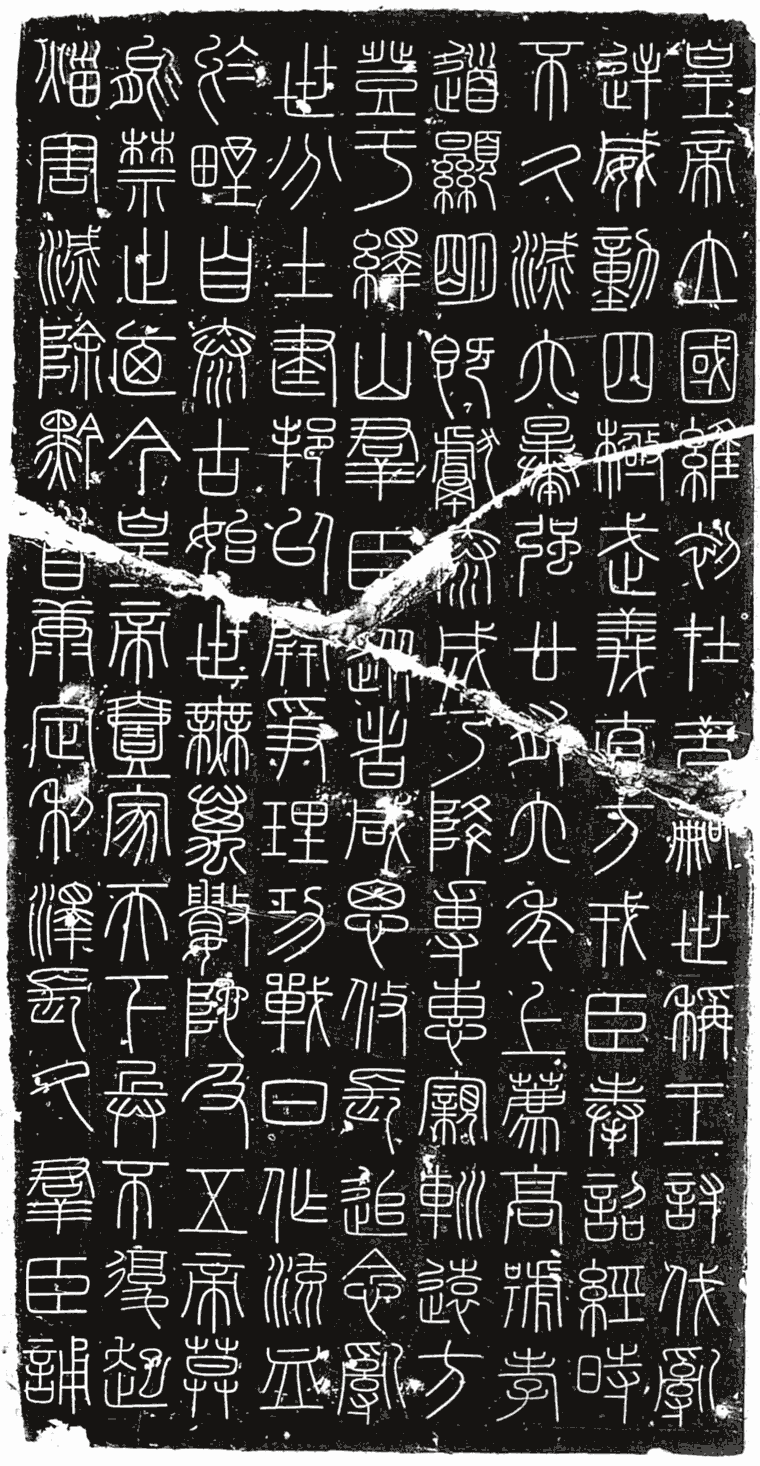 皇帝立國維初在昔嗣世稱王討伐亂
逆威動四極武義直方戎臣奉詔經時
不久滅六暴強廿有六年上薦高號孝
道顯明既獻泰成乃降尃惠寴𨊠遠方
登于繹山羣臣從者咸思攸長追念亂
世分土建邦以開爭理功戰日作流血
於野自泰古始世無萬數陀及五帝莫
能禁止迺今皇帝壹家天下兵不復起
災害滅除黔首康定利澤長久羣臣誦